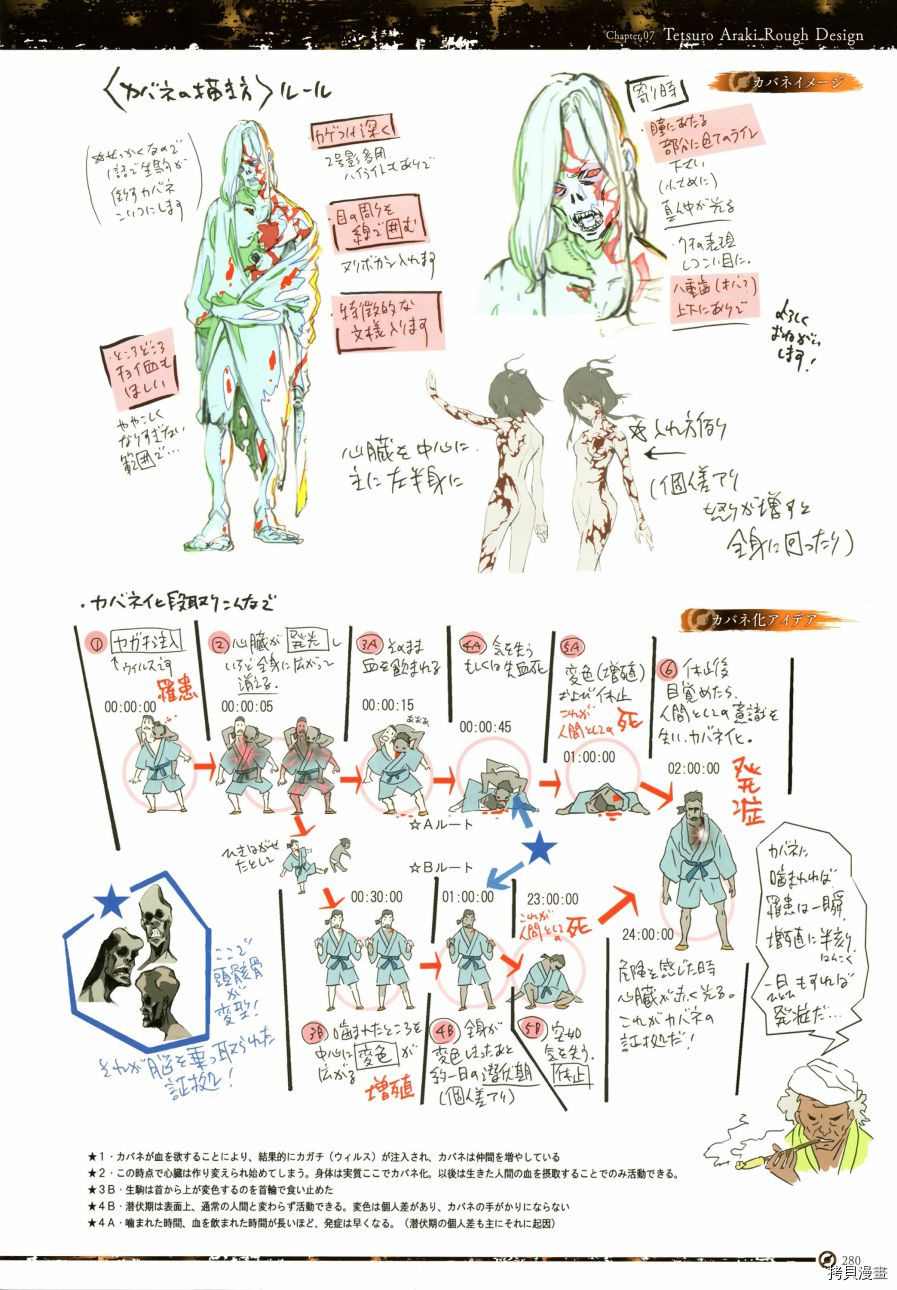 Chapter.07 Tetsuro Araki Rough Design
カバネイメージ
〈カバネの描き方〉ルール
カゲつけ深く
2号影多用
ハイライトもありで
・目の周りを
線で囲む
ヌリボカシ入れます
・特徴的な
文様入ります
・ところどころ
ややこしく
なりすぎない
範囲で…
寄り時
・瞳にあたる
部分に色トレのライン
下さい
(小さめに)
真ん中が光る
・クマの表現
しつこい目に.
・八重歯(キバ?)
上下にありで
よろしく
おねがい
します!
心臓を中心に
主に左半身に
(個体差アリ
怒りが増すと
全身に回ったり)
カバネ化アイデア
・カバネ化段取りこんなで
① カガチ注入
↑ウィルスです
罹患
00:00:00
② 心臓が発光し
いちど全身に広がって
消える.
00:00:05
3A そのまま
血を飲まれる
00:00:15
4A 気を失う
もしくは失血死
00:00:45
5A
変色(増殖)
および休止
これが
人間としての死
01:00:00
⑥ 休止後
目覚めたら、
人間としての意識を
失い、カバネ化。
02:00:00
発症
☆Aルート
☆Bルート
ひきはがせ
たとして
00:30:00
01:00:00
23:00:00
これが
人間としての死
24:00:00
3B 噛まれたところを
中心に変色が
広がる
増殖
4B 全身が
変色しきったあと
約一日の潜伏期
(個体差アリ)
5B 突如
気を失う.
休止
危険を感じた時
心臓が赤く光る。
これがカバネの
証拠だ!
カバネに
噛まれれば
罹患は一瞬,
増殖に半刻,
はんとき
一日もすれば
発症だ…
ここで
頭骸骨
が
変型!
それが脳を乗っ取られた
証拠!
★1・カバネが血を欲することにより、結果的にカガチ(ウィルス)が注入され、カバネは仲間を増やしている
★2・この時点で心臓は作り変えられ始めてしまう。身体は実質ここでカバネ化。以後は生きた人間の血を摂取することでのみ活動できる。
★3B・生駒は首から上が変色するのを首輪で食い止めた
★4B・潜伏期は表面上、通常の人間と変わらず活動できる。変色は個人差があり、カバネの手がかりにならない
★4A・噛まれた時間、血を飲まれた時間が長いほど、発症は早くなる。(潜伏期の個人差も主にそれに起因)
280
拷貝漫畫